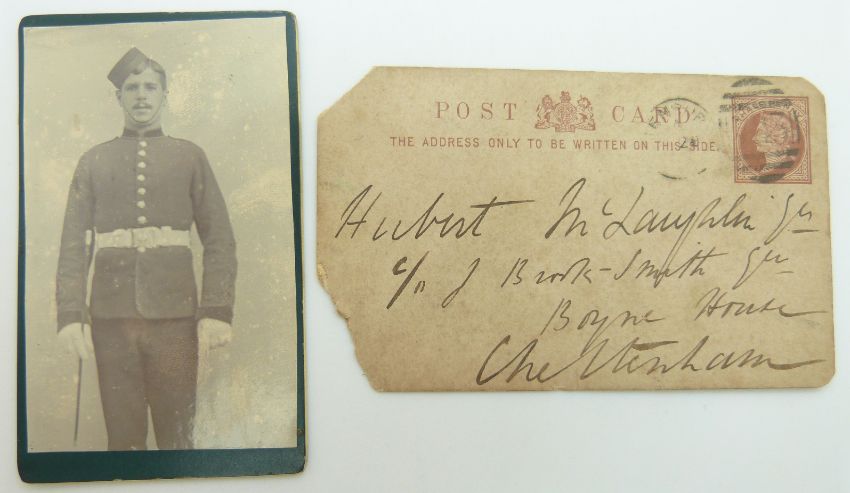 POST CARD
THE ADDRESS ONLY TO BE WRITTEN ON THIS SIDE.
Hubert McLaughlin
c/o J Brook-Smith
Boyne House
Cheltenham